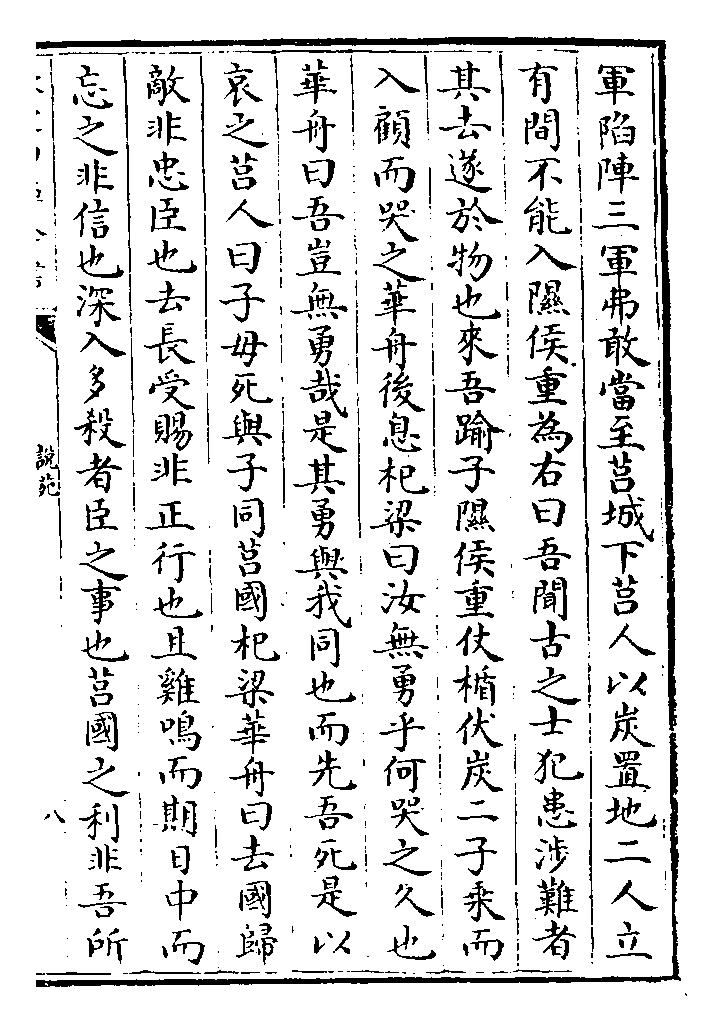 軍陷陣三軍弗敢當至莒城下莒人以炭置地二人立
有間不能入隰侯重為右曰吾聞古之士犯患涉難者
其去遂於物也來吾踰子隰侯重仗楯伏炭二子乘而
入顧而哭之華舟後息杞梁曰汝無勇乎何哭之久也
華舟曰吾豈無勇哉是其勇與我同也而先吾死是以
哀之莒人曰子毋死與子同莒國杞梁華舟曰去國歸
敵非忠臣也去長受賜非正行也且雞鳴而期日中而
忘之非信也深入多殺者臣之事也莒國之利非吾所
說苑
八